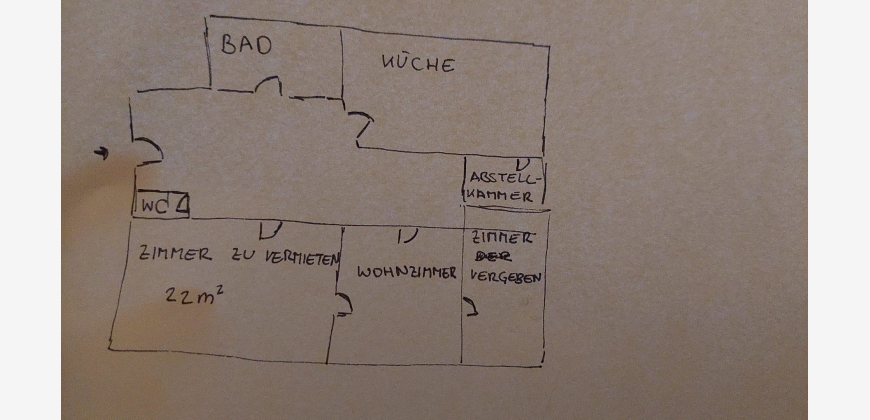 BAD
KÜCHE
ABSTELL-
KAMMER
WC
ZIMMER ZU VERMIETEN
22m²
WOHNZIMMER
ZIMMER
VERGEBEN